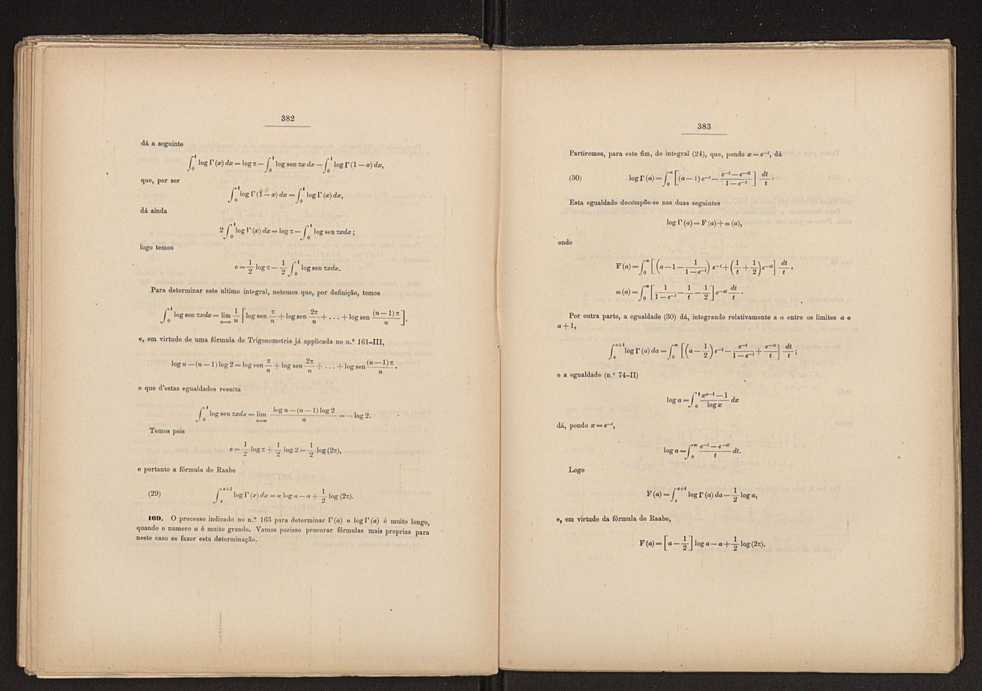 382
dá a seguinte
∫₀¹ log Γ (x) dx = log π − ∫₀¹ log sen πx dx − ∫₀¹ log Γ (1 − x) dx,
que, por ser
∫₀¹ log Γ (1 − x) dx = ∫₀¹ log Γ (x) dx,
dá ainda
2 ∫₀¹ log Γ (x) dx = log π − ∫₀¹ log sen πxdx ;
logo temos
c = 1/2 log π − 1/2 ∫₀¹ log sen πxdx.
Para determinar este ultimo integral, notemos que, por definição, temos
∫₀¹ log sen πxdx = lim_{n=∞} 1/n [log sen π/n + log sen 2π/n + . . . + log sen (n − 1) π/n],
e, em virtude de uma fórmula de Trigonometria já applicada no n.º 161–III,
log n − (n − 1) log 2 = log sen π/n + log sen 2π/n + . . . + log sen (n − 1) π/n,
e que d'estas egualdades resulta
∫₀¹ log sen πxdx = lim_{n=∞} (log n − (n − 1) log 2)/n = − log 2.
Temos pois
c = 1/2 log π + 1/2 log 2 = 1/2 log (2π),
e portanto a fórmula de Raabe
(29) ∫ₐ^{a+1} log Γ (x) dx = a log a − a + 1/2 log (2π).
169. O processo indicado no n.º 163 para determinar Γ (a) o log Γ (a) é muito longo,
quando o numero a é muito grande. Vamos porisso procurar fórmulas mais proprias para
neste caso se fazer esta determinação.
383
Partiremos, para este fim, do integral (24), que, pondo x = e^{−t}, dá
(30) log Γ (a) = ∫₀^∞ [(a − 1) e^{−t} − (e^{−t} − e^{−at})/(1 − e^{−t})] dt/t .
Esta egualdade decompõe-se nas duas seguintes
log Γ (a) = F (a) + ω (a),
onde
F (a) = ∫₀^∞ [(a − 1 − 1/(1 − e^{−t})) e^{−t} + (1/t + 1/2) e^{−at}] dt/t ,
ω (a) = ∫₀^∞ [1/(1 − e^{−t}) − 1/t − 1/2] e^{−at} dt/t .
Por outra parte, a egualdade (30) dá, integrando relativamente a a entre os limites a e
a + 1,
∫ₐ^{a+1} log Γ (a) da = ∫₀^∞ [(a − 1/2) e^{−t} − e^{−t}/(1 − e^{−t}) + e^{−at}/t] dt/t ;
e a egualdade (n.º 74–II)
log a = ∫₀¹ (x^{a−1} − 1)/log x dx
dá, pondo x = e^{−t},
log a = ∫₀^∞ (e^{−t} − e^{−at})/t dt.
Logo
F (a) = ∫ₐ^{a+1} log Γ (a) da − 1/2 log a,
e, em virtude da fórmula de Raabe,
F (a) = [a − 1/2] log a − a + 1/2 log (2π),